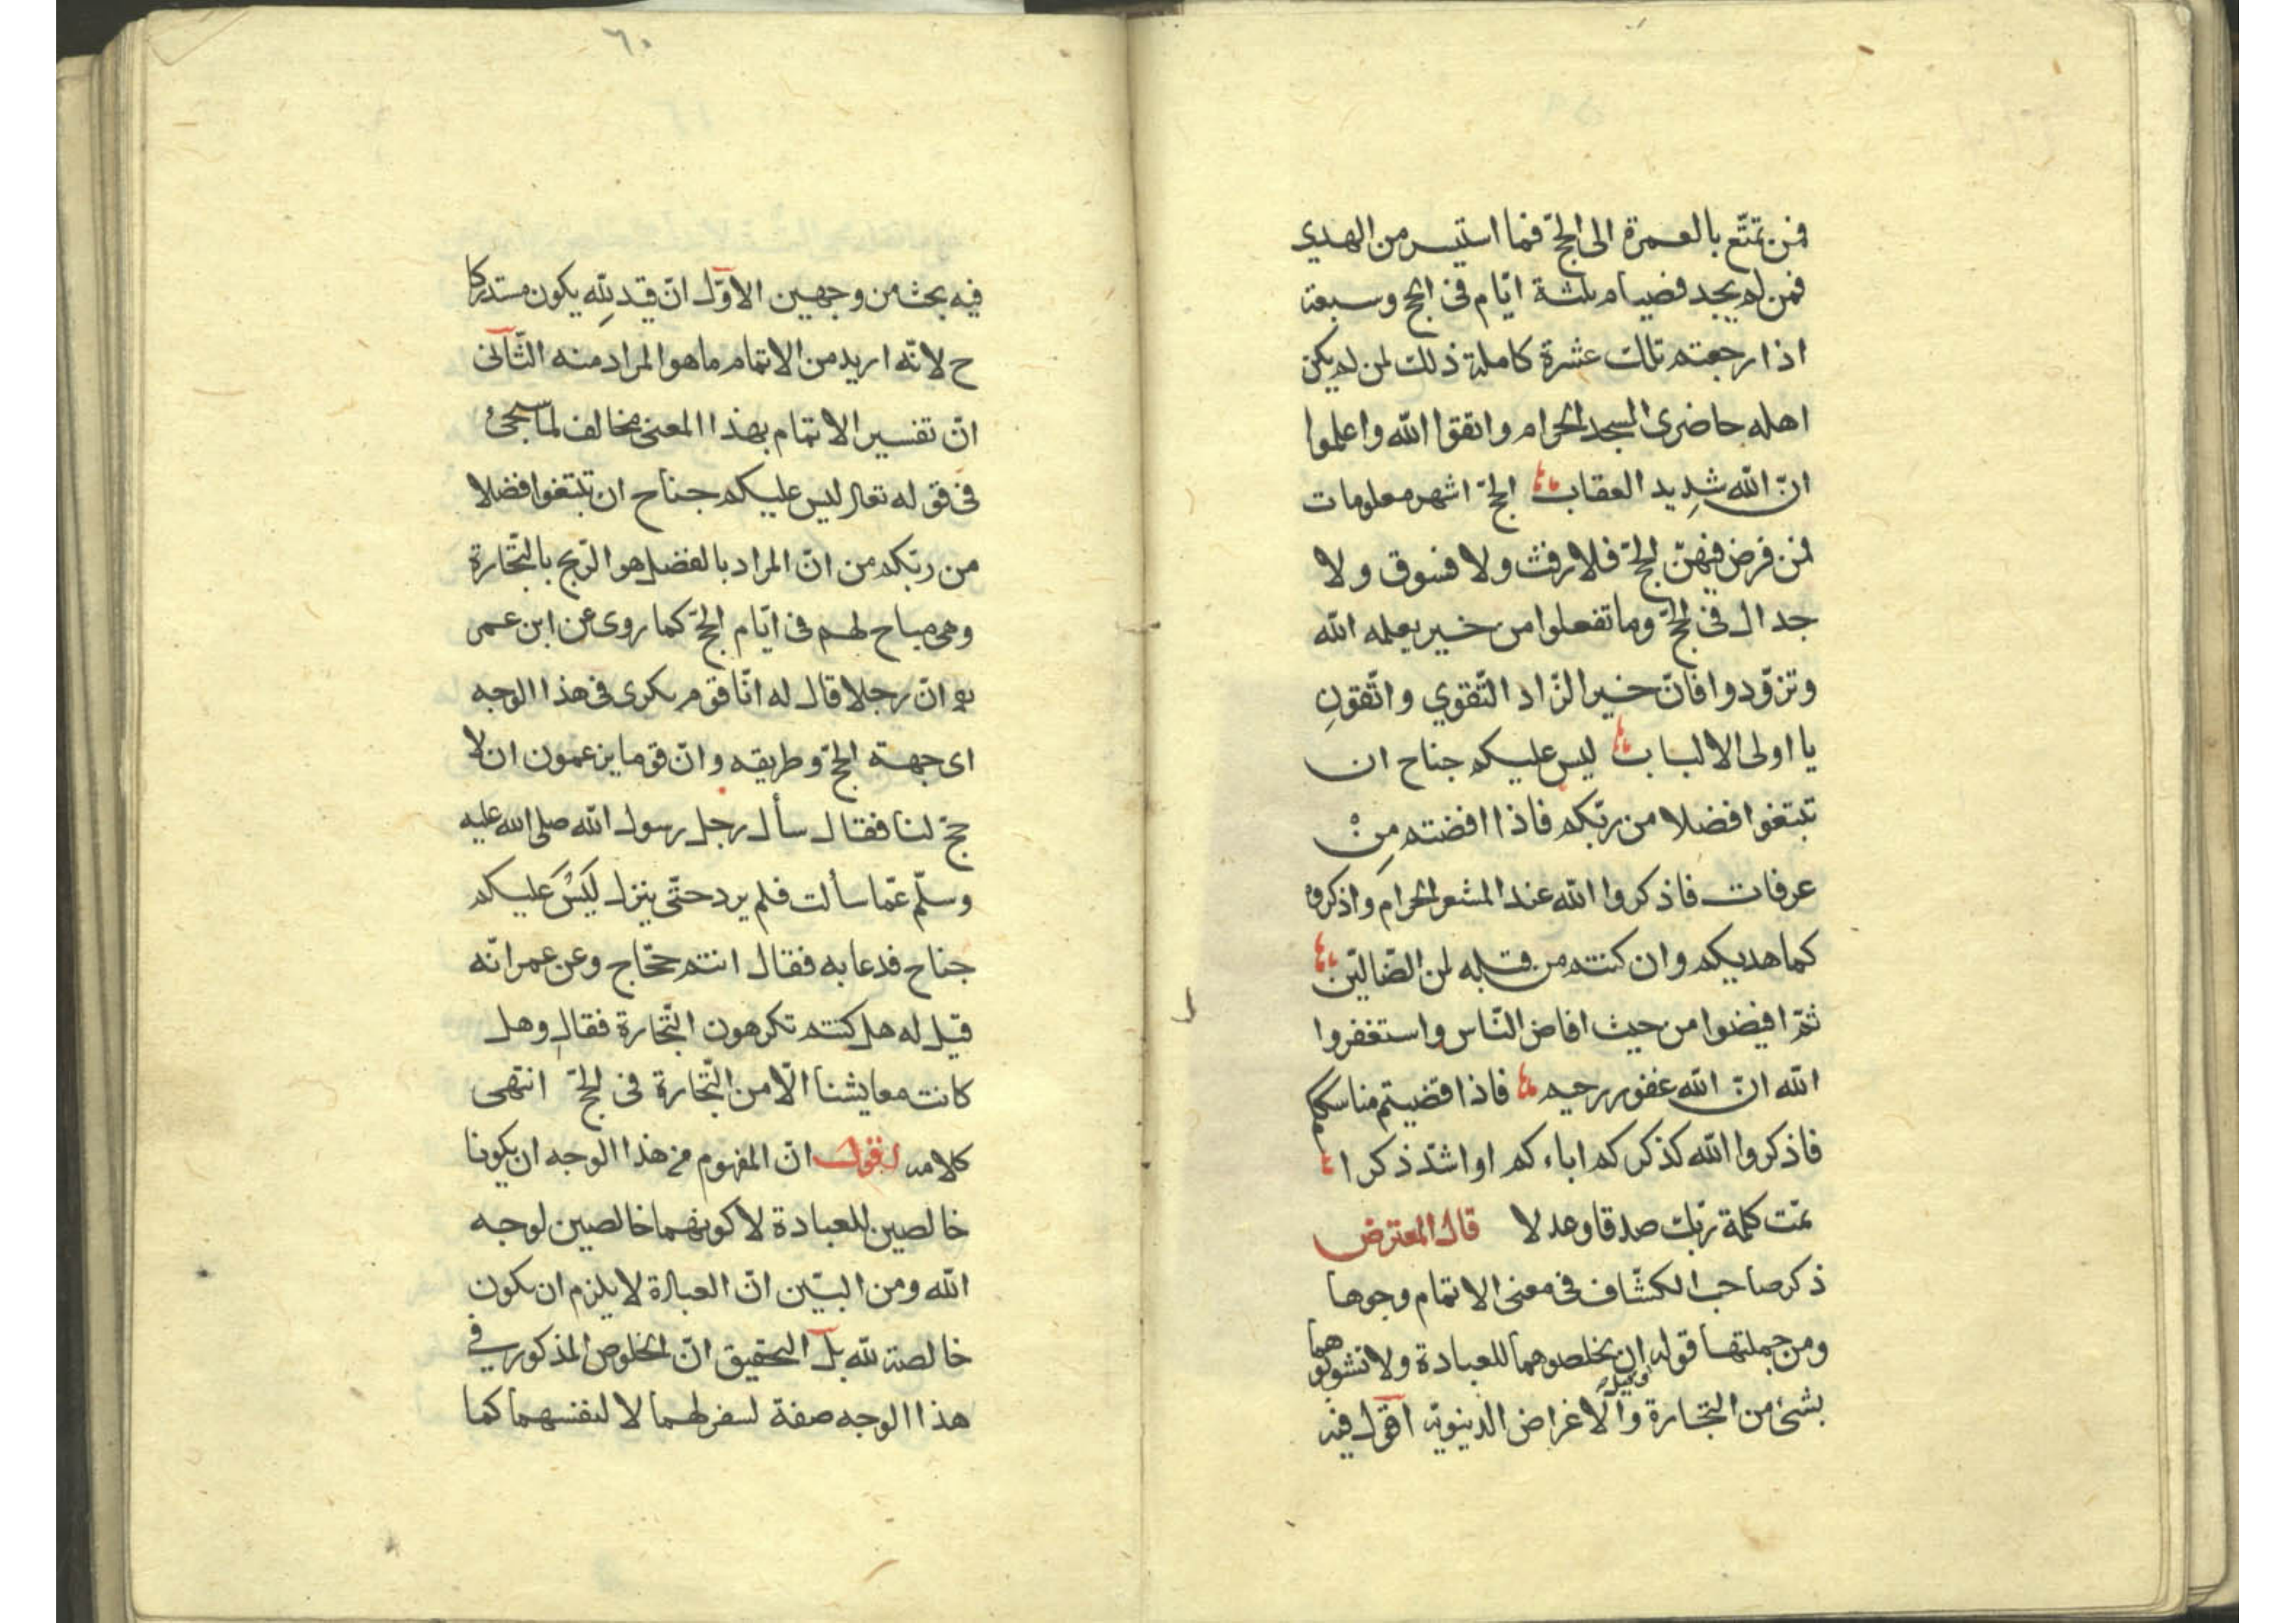 فمن تمتّع بالعمرة الى الحجّ فما استيسر من الهدي
فمن لم يجد فصيام ثلثة ايّام فى الحج وسبعة
اذا رجعتم تلك عشرة كاملة ذلك لمن لم يكن
اهله حاضرى المسجد الحرام واتقوا الله واعلموا
انّ الله شديد العقاب الحجّ اشهر معلومات
فمن فرض فيهنّ الحجّ فلا رفث ولا فسوق ولا
جدال فى الحجّ وما تفعلوا من خير يعلمه الله
وتزوّدوا فانّ خير الزّاد التّقوي واتّقونِ
يا اولى الالباب ليس عليكم جناح ان
تبتغوا فضلا من ربّكم فاذا افضتم مِنْ
عرفات فاذكروا الله عند المشعر الحرام واذكروه
كما هديكم وان كنتم من قبله لمن الضّالّين
ثمّ افيضوا من حيث افاض النّاس واستغفروا
الله انّ الله غفور رحيم فاذا قضيتم مناسككم
فاذكروا الله كذكركم اباءكم او اشدّ ذكرا
تمّت كلمة ربّك صدقا وعدلا قال المعترض
ذكر صاحب الكشّاف فى معنى الاتمام وجوها
ومن جملتها قوله ان يخلصوهما للعبادة ولا تشوبوهما
بشئ من التجارة والاغراض الدّنيويّة اقول فيه
٦٠
فيه بحث من وجهين الاوّل انّ قيد لِلّه يكون مستدركا
ح لانّه اريد من الاتمام ما هو المراد منه الثّانى
انّ تفسير الاتمام بهذا المعنى مخالف لما سيجئ
فى قوله تعالى ليس عليكم جناح ان تبتغوا فضلا
من ربّكم من انّ المراد بالفضل هو الرّبح بالتّجارة
وهى مباح لهم فى ايّام الحجّ كما روى عن ابن عمر
انّ رجلا قال له انّا قوم نكرى فى هذا الوجه
اى جهة الحجّ وطريقه وانّ قوما يزعمون ان لا
حجّ لنا فقال سأل رجل رسول الله صلى الله عليه
وسلّم عمّا سألت فلم يرد حتّى ينزل لَيْسَ عليكم
جناح فدعا به فقال انتم حجّاج وعن عمر انّه
قيل له هل كنتم تكرهون التّجارة فقال وهل
كانت معايشنا الّا من التّجارة فى الحجّ انتهى
كلامه اقول انّ المفهوم من هذا الوجه ان يكونا
خالصين للعبادة لا كونهما خالصين لوجه
الله ومن البيّن انّ العبادة لا يلزم ان يكون
خالصة لله بل التحقيق انّ الخلوص المذكور في
هذا الوجه صفة لسفر لهما لا لنفسهما كما